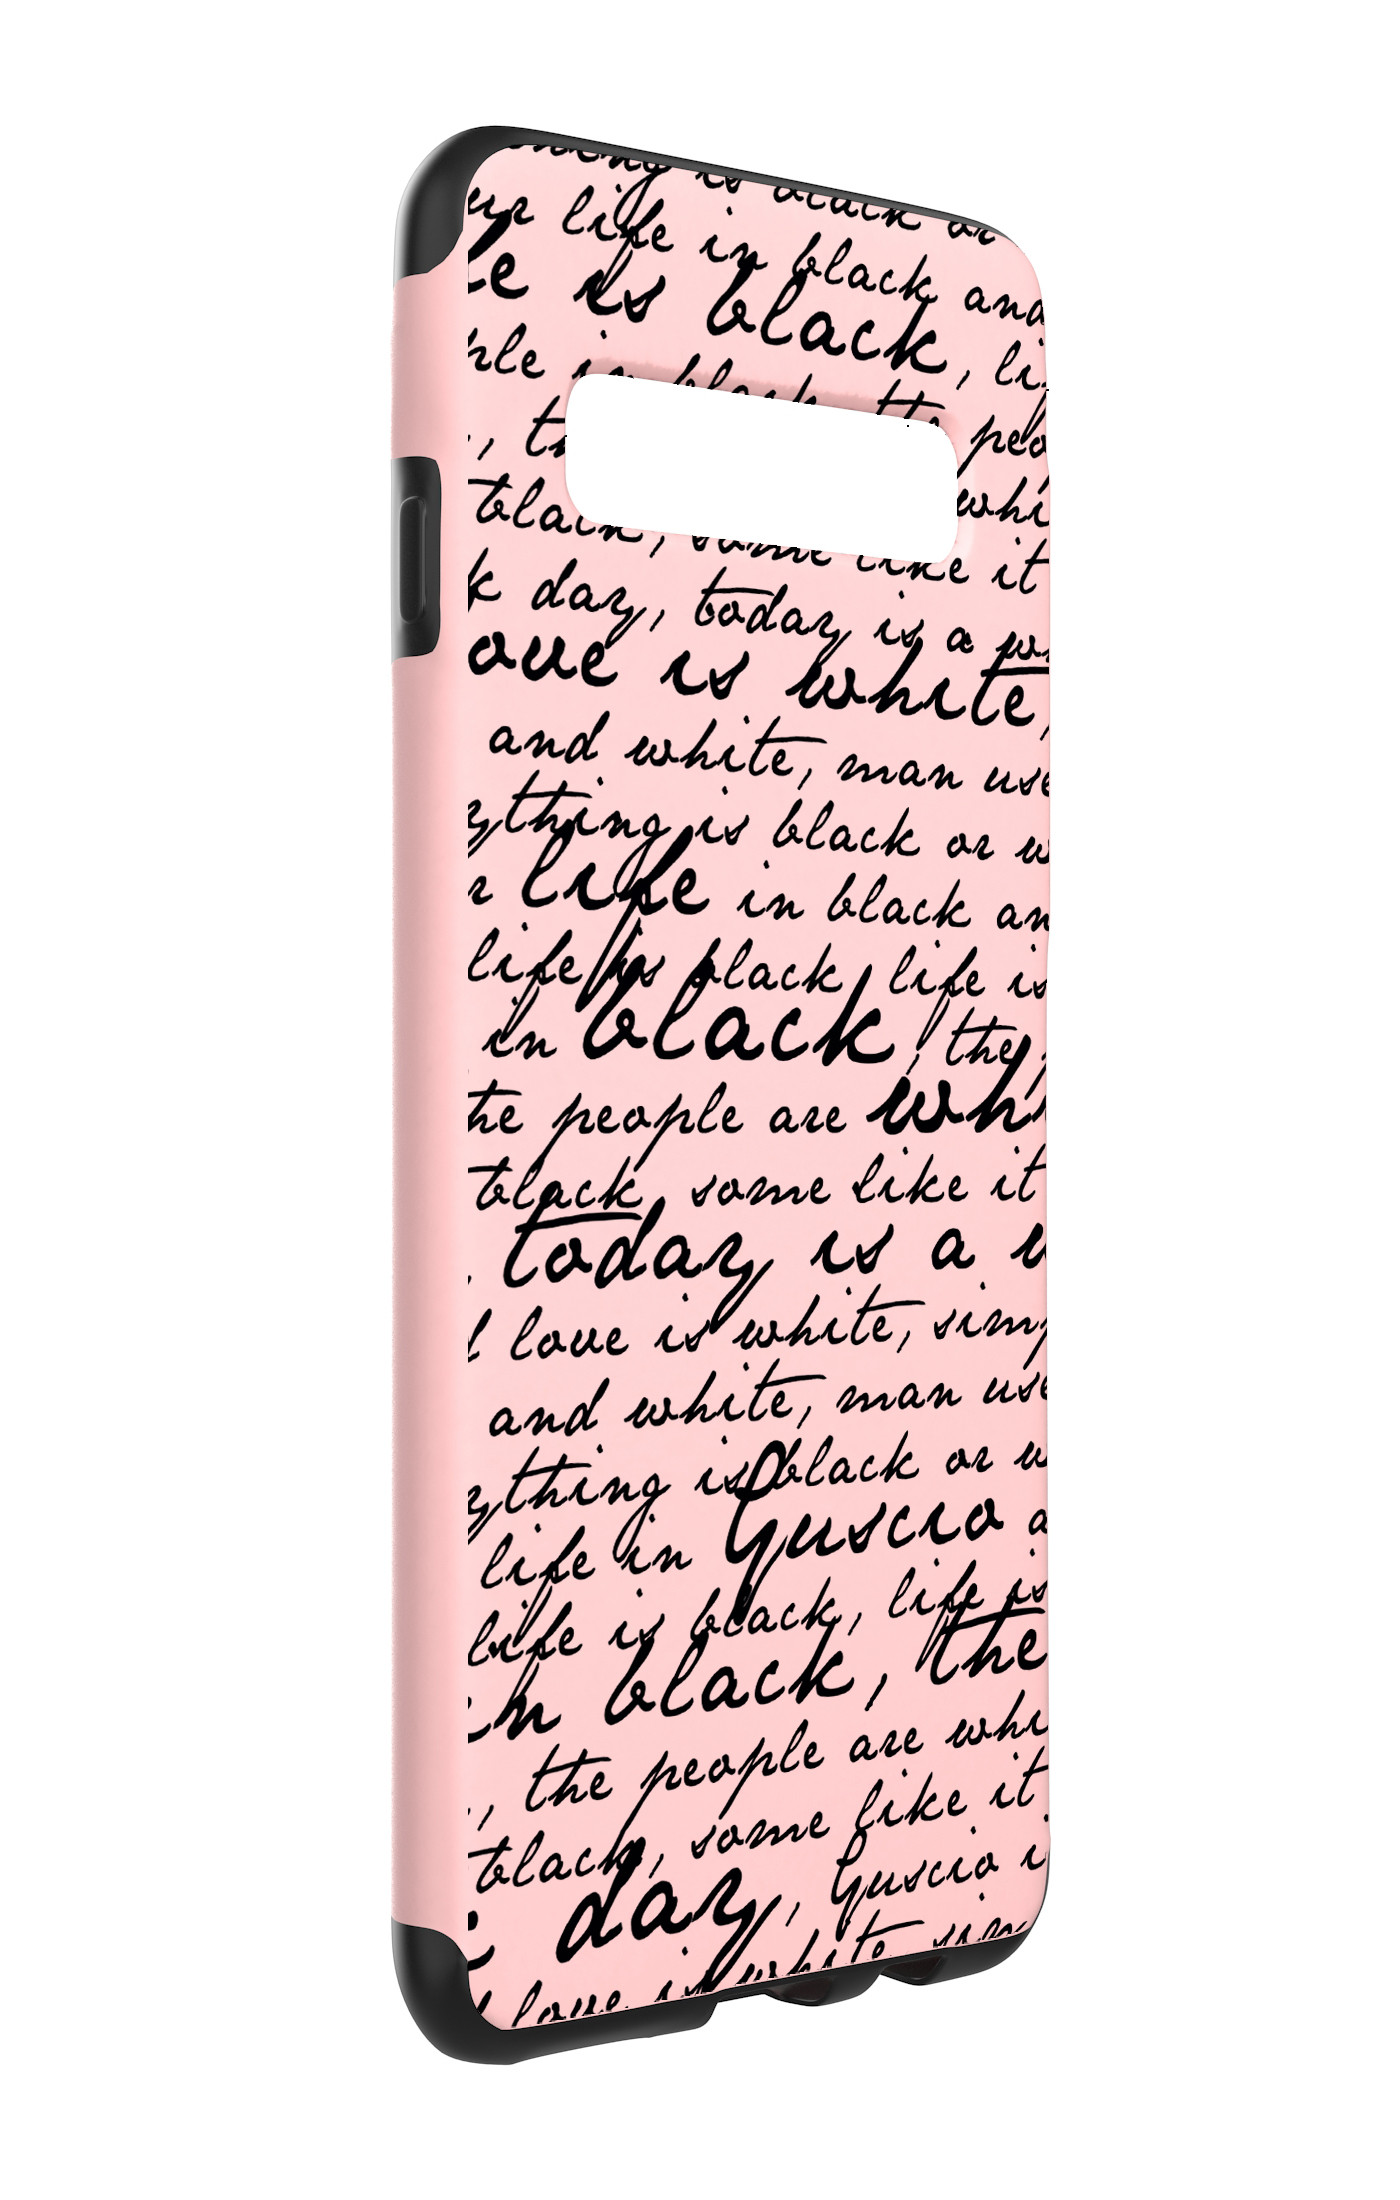 is black or
life in black and
is black, li
in black, the peo
black, some like it
k day, today is a
ove is white,
and white, man use
ything is black or w
r life in black an
life is black, life is
in black, the
he people are whi
black, some like it
today is a w
love is white, simp
and white, man use
ything is black or w
life in Guscio a
life is black, life is
in black, the
, the people are whi
black, some like it
day, Guscio i
love is white, sim